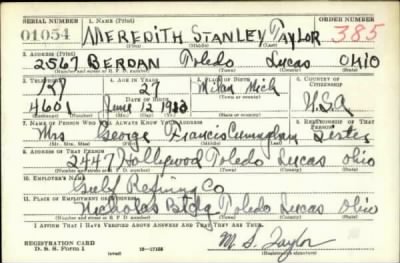 SERIAL NUMBER 1. NAME (Print) ORDER NUMBER
01054 MEREDITH STANLEY TAYLOR 385
(First) (Middle) (Last)
2. ADDRESS (Print)
2567 BERDAN Toledo Lucas OHIO
(Number and street or R. F. D. number) (Town) (County) (State)
3. TELEPHONE 4. AGE IN YEARS 5. PLACE OF BIRTH 6. COUNTRY OF CITIZENSHIP
27 Milan Mich
4601 DATE OF BIRTH U.S.A
June 12 1913
(Mo.) (Day) (Yr.)
7. NAME OF PERSON WHO WILL ALWAYS KNOW YOUR ADDRESS 8. RELATIONSHIP OF THAT PERSON
Mrs George Francis Cunningham Sister
(Mr., Mrs., Miss) (First) (Middle) (Last)
9. ADDRESS OF THAT PERSON
2447 Hollywood Toledo Lucas Ohio
(Number and street or R. F. D. number) (Town) (County) (State)
10. EMPLOYER'S NAME
Gulf Refining Co
11. PLACE OF EMPLOYMENT OR BUSINESS
Nicholas Bldg Toledo Lucas Ohio
(Number and street or R. F. D. number) (Town) (County) (State)
I AFFIRM THAT I HAVE VERIFIED ABOVE ANSWERS AND THAT THEY ARE TRUE.
REGISTRATION CARD
D. S. S. Form 1 M. S. Taylor
(Registrant's signature)